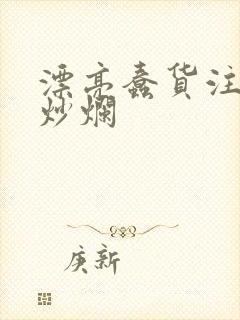 漂亮蠢货注
炒爛
庚新